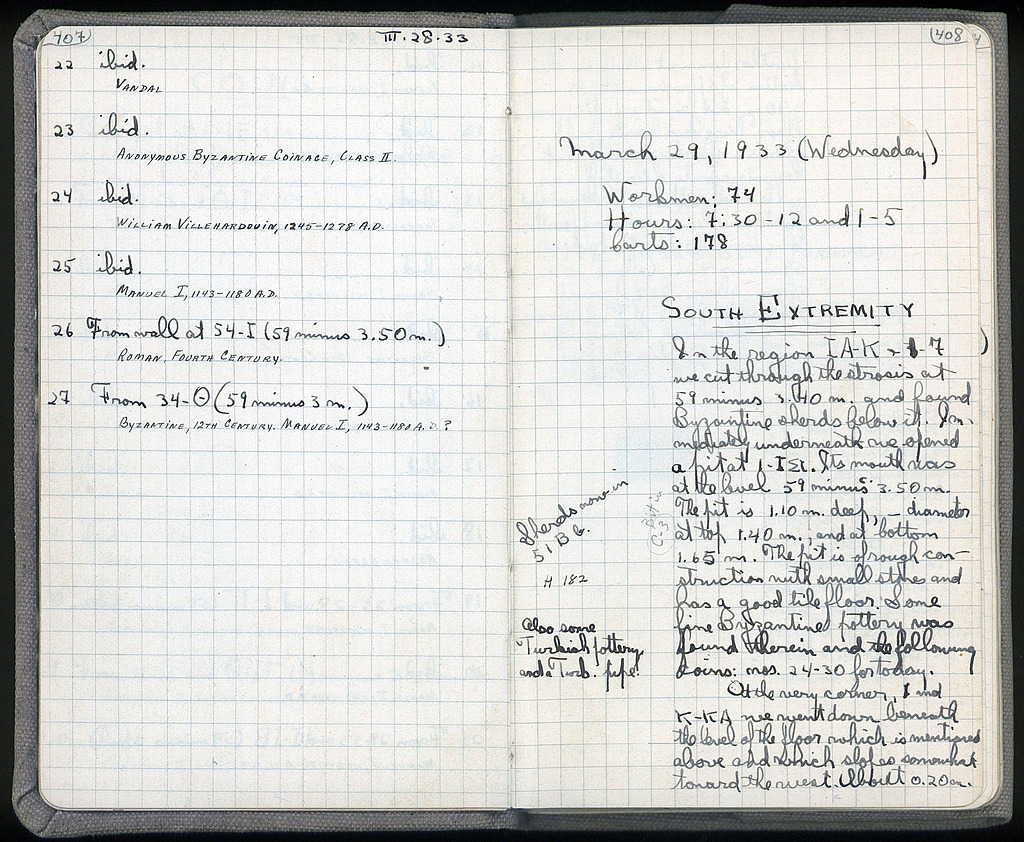 407
III·28·33
22 ibid.
VANDAL
23 ibid.
ANONYMOUS BYZANTINE COINAGE, CLASS II.
24 ibid.
WILLIAM VILLEHARDOUIN, 1245-1278 A.D.
25 ibid.
MANUEL I, 1143-1180 A.D.
26 From wall at 54-I (59 minus 3.50 m.)
ROMAN, FOURTH CENTURY.
27 From 34-Θ (59 minus 3 m.)
BYZANTINE, 12TH CENTURY. MANUEL I, 1143-1180 A.D.?
408
March 29, 1933 (Wednesday)
Workmen: 74
Hours: 7:30-12 and 1-5
Carts: 178
SOUTH EXTREMITY
In the region IA-K - 1-7
we cut through the strosis at
59 minus 3.40 m. and found
Byzantine sherds below it. Im-
mediately underneath we opened
a pit at Its mouth was
at the level 59 minus 3.50 m.
The pit is 1.10 m. deep, — diameter
at top 1.40 m., and at bottom
1.65 m. The pit is of rough con-
struction with small stones and
has a good tile floor. Some
fine Byzantine pottery was
found therein and the following
coins: nos. 24-30 for today.
At the very corner, 1 and
K-KA we went down beneath
the level of the floor which is mentioned
above and which slopes somewhat
toward the west. About 0.20 m.
Sherds now in
51 B 6.
H 182
Also some
Turkish pottery
and a Turk. pipe.